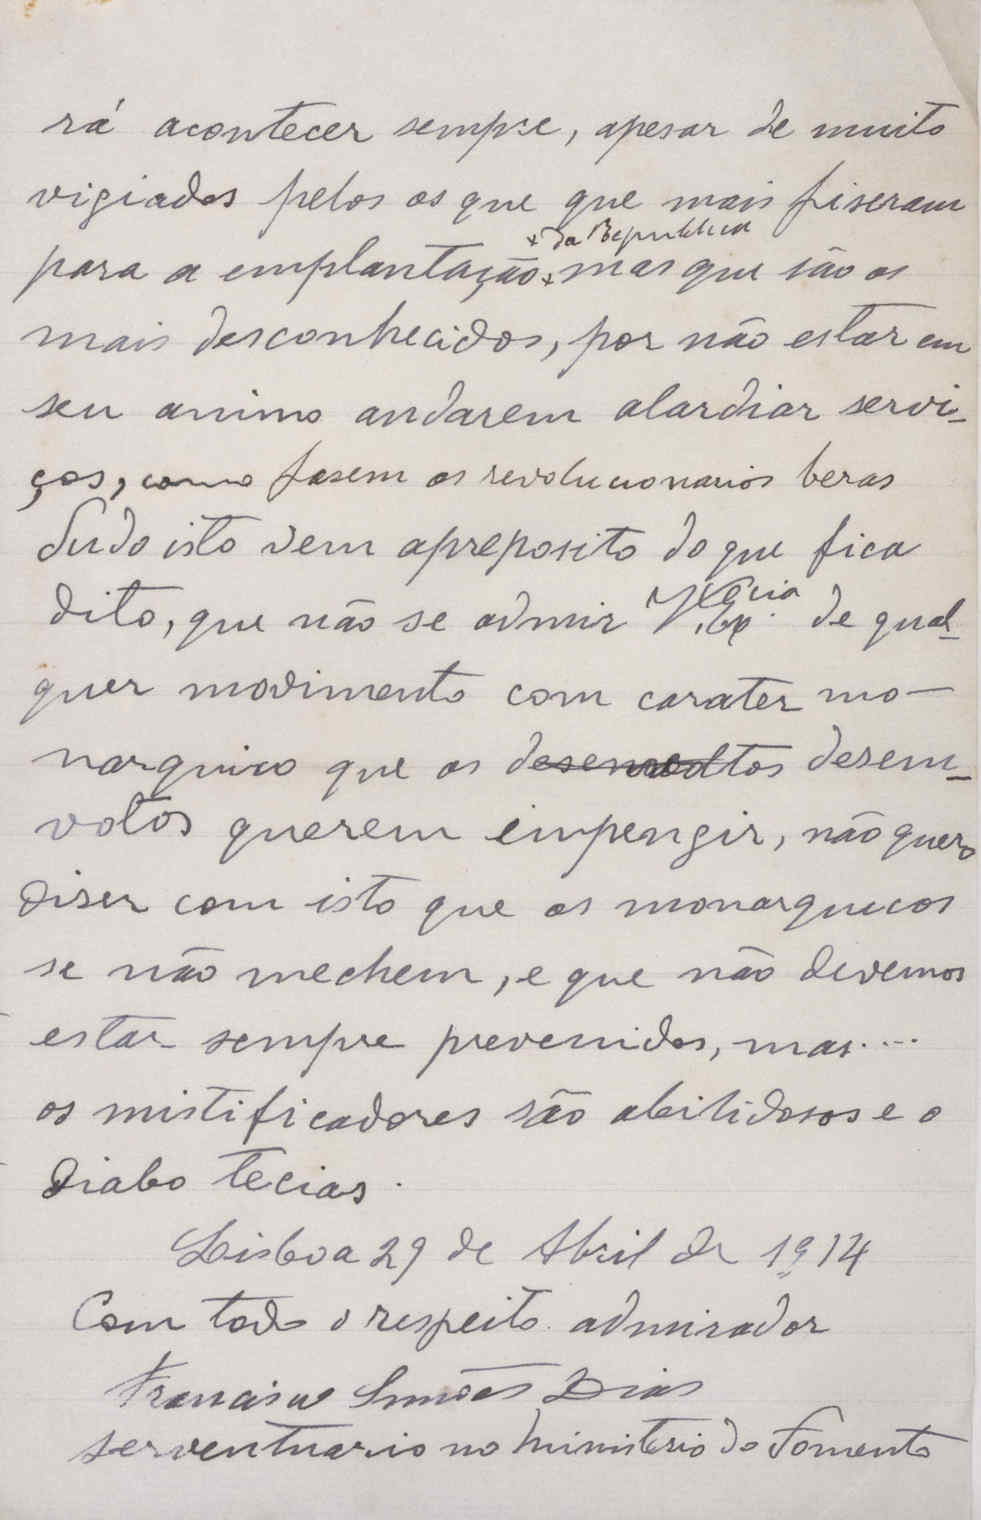 rá acontecer sempre, apesar de muito
vigiados pelos os que que mais fiseram
+ da Republica
para a emplantação + mas que são os
mais desconhecidos, por não estar em
seu animo andarem alardiar servi-
ços, como fasem os revolucionarios beras
Tudo isto vem apreposito do que fica
dito, que não se admir V. Ex.cia de qual-
quer movimento com carater mo-
narquico que os desenvoltos desem-
votos querem impengir, não quero
diser com isto que os monarquecos
se não mechem, e que não devemos
estar sempre prevenidos, mas....
os mistificadores são abilidosos e o
Diabo tecias.
Lisboa 29 de Abril de 1914
Com todo o respeito admirador
Francisco Simões Dias
serventuario no Ministerio do Fomento